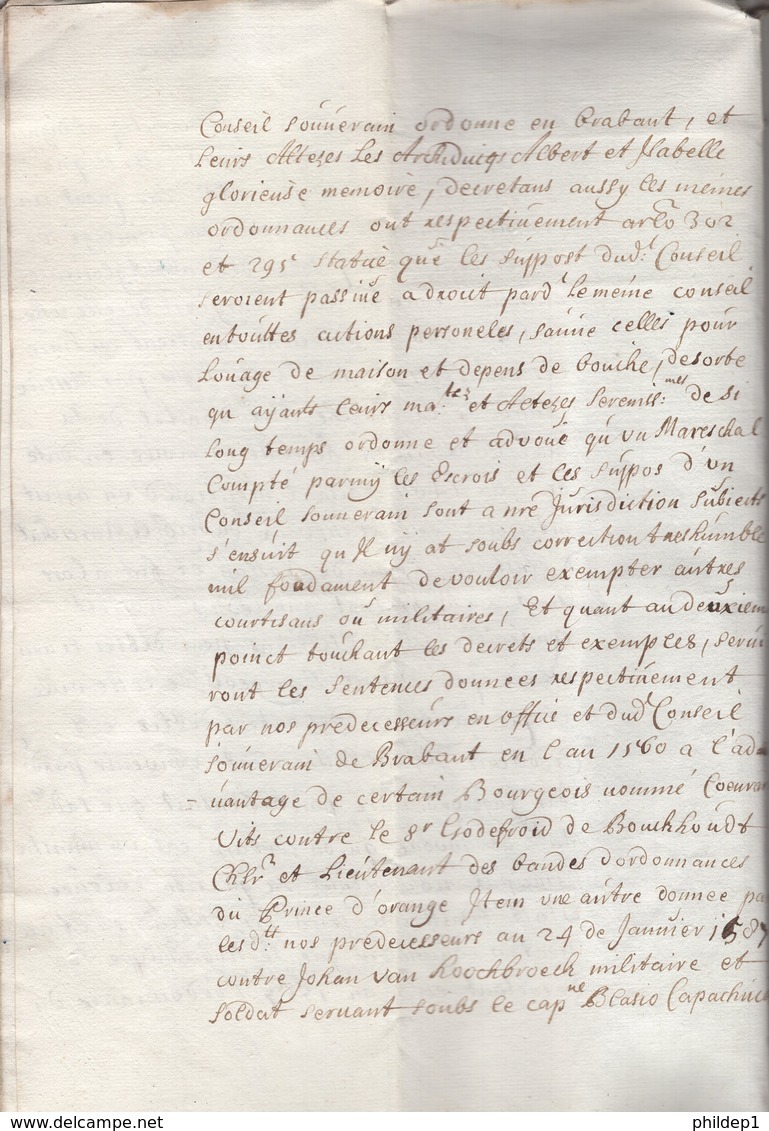 Conseil souuerain ordonne en brabant, et
leurs Altezes Les Archiducqs Albert et Isabelle
glorieuse memoire, decretans aussy les meines
ordonnances ont respectiuement artlo 302
et 295e statué que les suppost dudt Conseil
seroient passiue a droict pardt le meine conseil
en touttes actions personeles, sauue celles pour
Louage de maison et depens de bouche, desorte
qu ayants leurs ma:tez et Altezes Sereniss:mes de si
long temps ordonne et advoué qu'un Mareschal
Compté parmy les Escrois et les suppos d'un
Conseil souuerain sont a nre Jurisdiction subiects
s'ensuit qu Il ny at soubs correction treshumble
nul fondament de vouloir exempter autres
courtisans ou militaires, Et quant au deuxiem
poinct touchant les decrets et exemples, serui
ront les sentences donnees respectiuement
par nos predecesseurs en office et dudt Conseil
souuerain de Brabant en l an 1560 a l'ad-
uantage de certain Bourgeois nommé Coenra
Vits contre le Sr Godefroid de Bouckhoudt
Chlr et Lieutenant des bandes dordonnances
du Prince d'orange Item une autre donnee pa
les dtt nos predecesseurs au 24 de Januier 1587
contre Johan van hoochbroeck militaire et
soldat seruant soubs le capne Blasio Capachi
phildep1